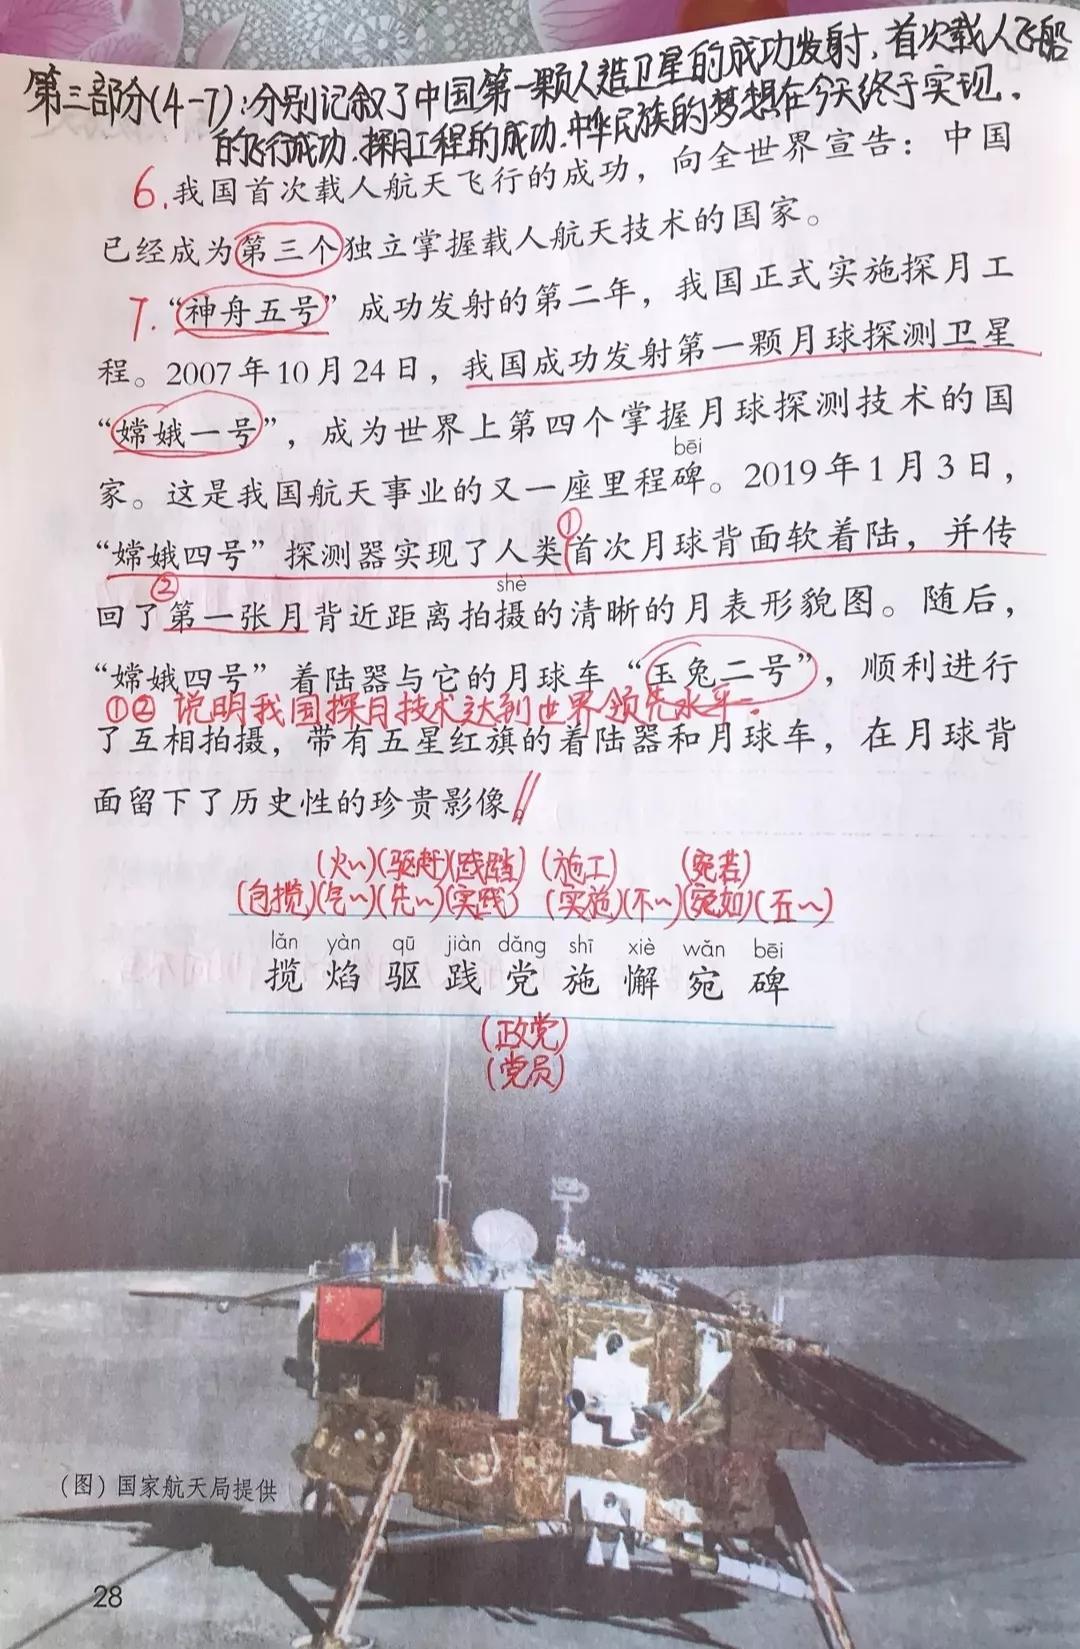 第三部分(4-7):分别记叙了中国第一颗人造卫星的成功发射、首次载人飞船
的飞行成功、探月工程的成功、中华民族的梦想在今天终于实现。
6.我国首次载人航天飞行的成功，向全世界宣告：中国
已经成为第三个独立掌握载人航天技术的国家。
7.“神舟五号”成功发射的第二年，我国正式实施探月工
程。2007年10月24日，我国成功发射第一颗月球探测卫星
“嫦娥一号”，成为世界上第四个掌握月球探测技术的国
bēi
家。这是我国航天事业的又一座里程碑。2019年1月3日，
①
“嫦娥四号”探测器实现了人类首次月球背面软着陆，并传
② shè
回了第一张月背近距离拍摄的清晰的月表形貌图。随后，
“嫦娥四号”着陆器与它的月球车“玉兔二号”，顺利进行
①②说明我国探月技术达到世界领先水平。
了互相拍摄，带有五星红旗的着陆器和月球车，在月球背
面留下了历史性的珍贵影像。
(火~)(驱赶)(践踏)(施工)(宛若)
(包揽)(气~)(先~)(实践)(实施)(不~)(宛如)(丘~)
lǎn yàn qū jiàn dǎng shī xiè wǎn bēi
揽 焰 驱 践 党 施 懈 宛 碑
(政党)
(党员)
(图)国家航天局提供
28